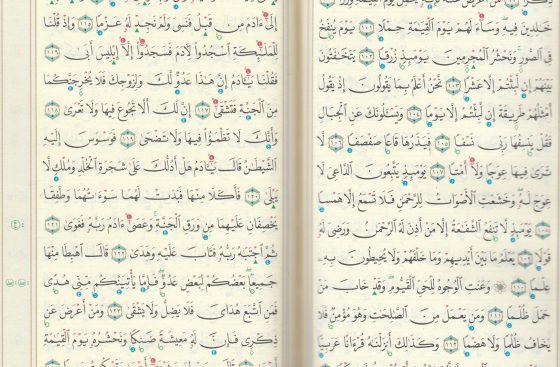 خَٰلِدِينَ فِيهِ وَسَآءَ لَهُمْ يَوْمَ ٱلْقِيَٰمَةِ حِمْلًا ١٠١ يَوْمَ يُنفَخُ
فِى ٱلصُّورِ وَنَحْشُرُ ٱلْمُجْرِمِينَ يَوْمَئِذٍ زُرْقًا ١٠٢ يَتَخَٰفَتُونَ
بَيْنَهُمْ إِن لَّبِثْتُمْ إِلَّا عَشْرًا ١٠٣ نَّحْنُ أَعْلَمُ بِمَا يَقُولُونَ إِذْ يَقُولُ
أَمْثَلُهُمْ طَرِيقَةً إِن لَّبِثْتُمْ إِلَّا يَوْمًا ١٠٤ وَيَسْـَٔلُونَكَ عَنِ ٱلْجِبَالِ
فَقُلْ يَنسِفُهَا رَبِّى نَسْفًا ١٠٥ فَيَذَرُهَا قَاعًا صَفْصَفًا ١٠٦ لَّا
تَرَىٰ فِيهَا عِوَجًا وَلَآ أَمْتًا ١٠٧ يَوْمَئِذٍ يَتَّبِعُونَ ٱلدَّاعِىَ لَا
عِوَجَ لَهُۥ وَخَشَعَتِ ٱلْأَصْوَاتُ لِلرَّحْمَٰنِ فَلَا تَسْمَعُ إِلَّا هَمْسًا
١٠٨ يَوْمَئِذٍ لَّا تَنفَعُ ٱلشَّفَٰعَةُ إِلَّا مَنْ أَذِنَ لَهُ ٱلرَّحْمَٰنُ وَرَضِىَ لَهُۥ
قَوْلًا ١٠٩ يَعْلَمُ مَا بَيْنَ أَيْدِيهِمْ وَمَا خَلْفَهُمْ وَلَا يُحِيطُونَ بِهِۦ
عِلْمًا ١١٠ ۞ وَعَنَتِ ٱلْوُجُوهُ لِلْحَىِّ ٱلْقَيُّومِ وَقَدْ خَابَ مَنْ
حَمَلَ ظُلْمًا ١١١ وَمَن يَعْمَلْ مِنَ ٱلصَّٰلِحَٰتِ وَهُوَ مُؤْمِنٌ فَلَا
يَخَافُ ظُلْمًا وَلَا هَضْمًا ١١٢ وَكَذَٰلِكَ أَنزَلْنَٰهُ قُرْءَانًا عَرَبِيًّا
إِلَىٰٓ ءَادَمَ مِن قَبْلُ فَنَسِىَ وَلَمْ نَجِدْ لَهُۥ عَزْمًا ١١٥ وَإِذْ قُلْنَا
لِلْمَلَٰٓئِكَةِ ٱسْجُدُوا۟ لِءَادَمَ فَسَجَدُوٓا۟ إِلَّآ إِبْلِيسَ أَبَىٰ ١١٦
فَقُلْنَا يَٰٓـَٔادَمُ إِنَّ هَٰذَا عَدُوٌّ لَّكَ وَلِزَوْجِكَ فَلَا يُخْرِجَنَّكُمَا
مِنَ ٱلْجَنَّةِ فَتَشْقَىٰٓ ١١٧ إِنَّ لَكَ أَلَّا تَجُوعَ فِيهَا وَلَا تَعْرَىٰ ١١٨
وَأَنَّكَ لَا تَظْمَؤُا۟ فِيهَا وَلَا تَضْحَىٰ ١١٩ فَوَسْوَسَ إِلَيْهِ
ٱلشَّيْطَٰنُ قَالَ يَٰٓـَٔادَمُ هَلْ أَدُلُّكَ عَلَىٰ شَجَرَةِ ٱلْخُلْدِ وَمُلْكٍ لَّا
يَبْلَىٰ ١٢٠ فَأَكَلَا مِنْهَا فَبَدَتْ لَهُمَا سَوْءَٰتُهُمَا وَطَفِقَا
يَخْصِفَانِ عَلَيْهِمَا مِن وَرَقِ ٱلْجَنَّةِ وَعَصَىٰٓ ءَادَمُ رَبَّهُۥ فَغَوَىٰ ١٢١
ثُمَّ ٱجْتَبَٰهُ رَبُّهُۥ فَتَابَ عَلَيْهِ وَهَدَىٰ ١٢٢ قَالَ ٱهْبِطَا مِنْهَا
جَمِيعًۢا بَعْضُكُمْ لِبَعْضٍ عَدُوٌّ فَإِمَّا يَأْتِيَنَّكُم مِّنِّى هُدًى
فَمَنِ ٱتَّبَعَ هُدَاىَ فَلَا يَضِلُّ وَلَا يَشْقَىٰ ١٢٣ وَمَنْ أَعْرَضَ عَن
ذِكْرِى فَإِنَّ لَهُۥ مَعِيشَةً ضَنكًا وَنَحْشُرُهُۥ يَوْمَ ٱلْقِيَٰمَةِ